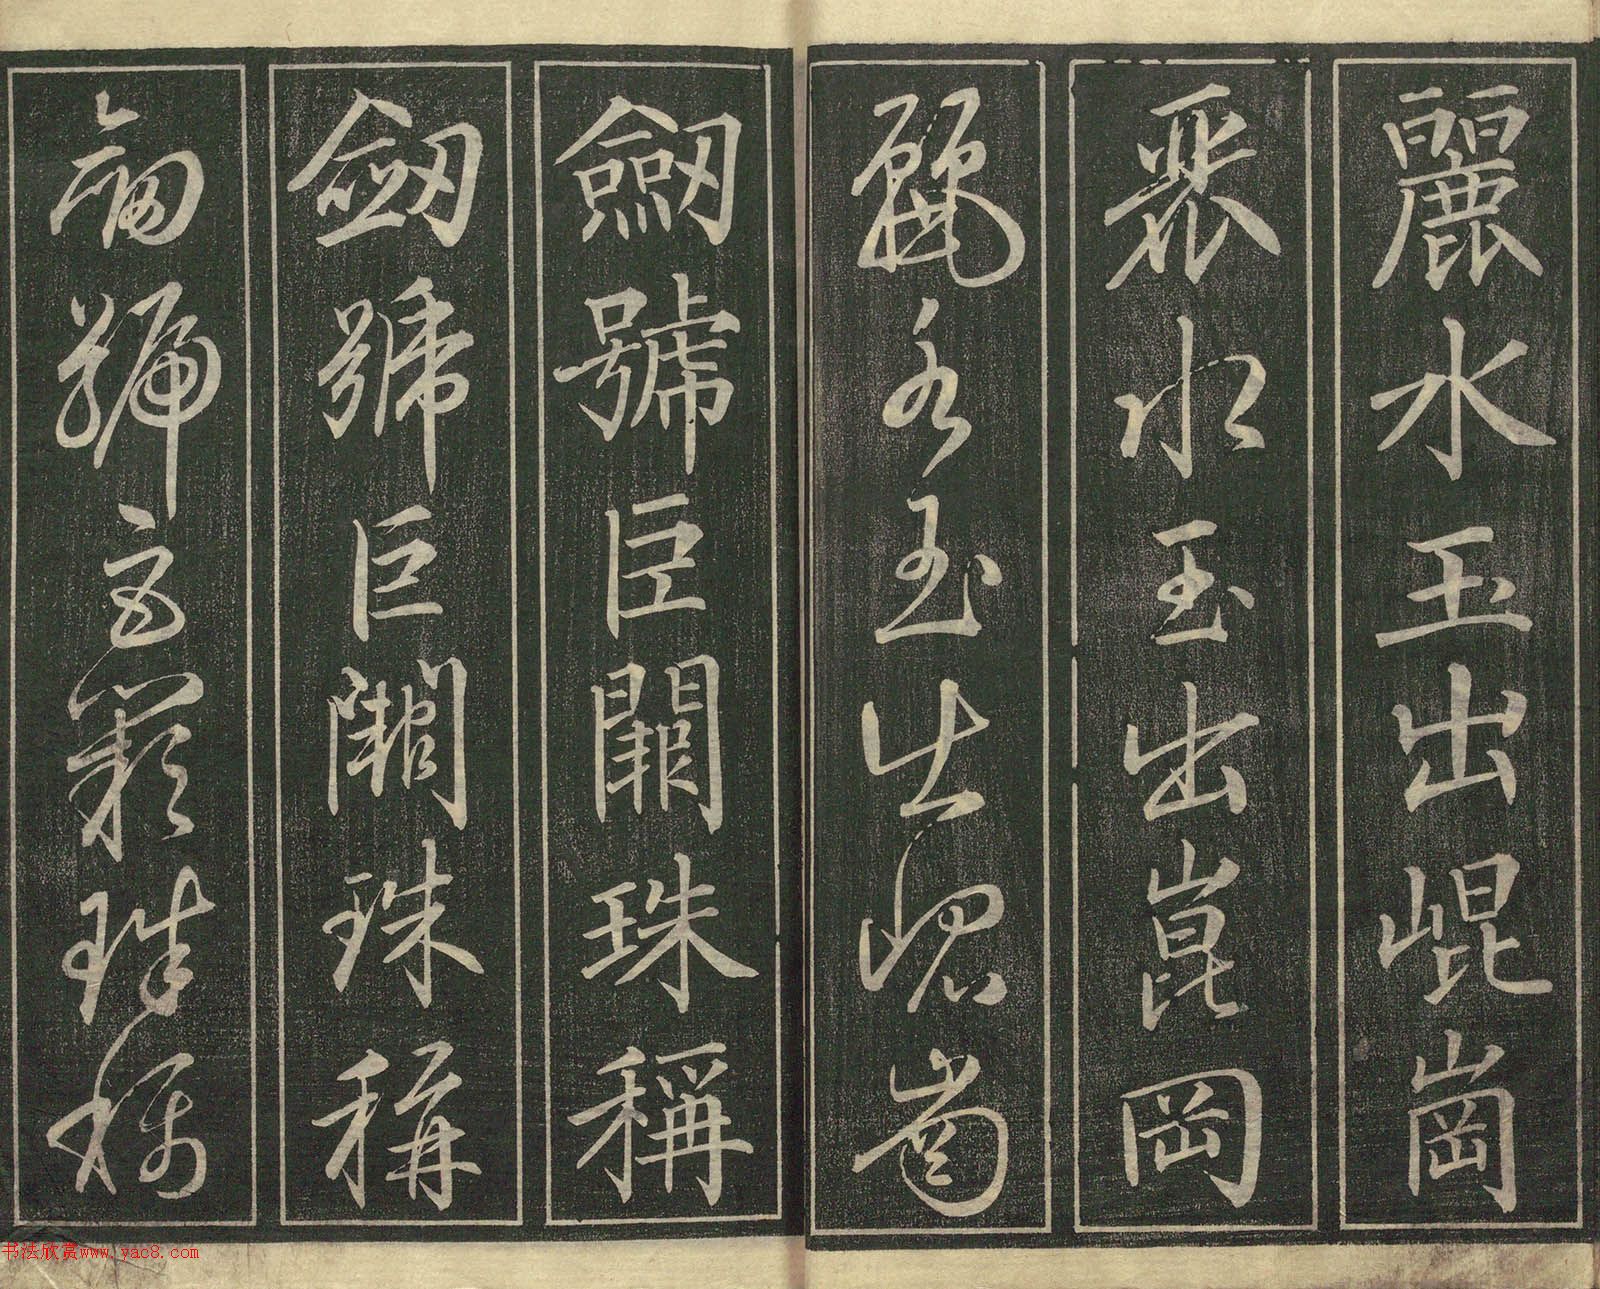 麗水玉出崐崗
麗水玉出崑岡
麗水玉出崐崗
劒號巨闕珠稱
劒號巨闕珠稱
劒號巨闕珠稱
书法欣赏www.yac8.com